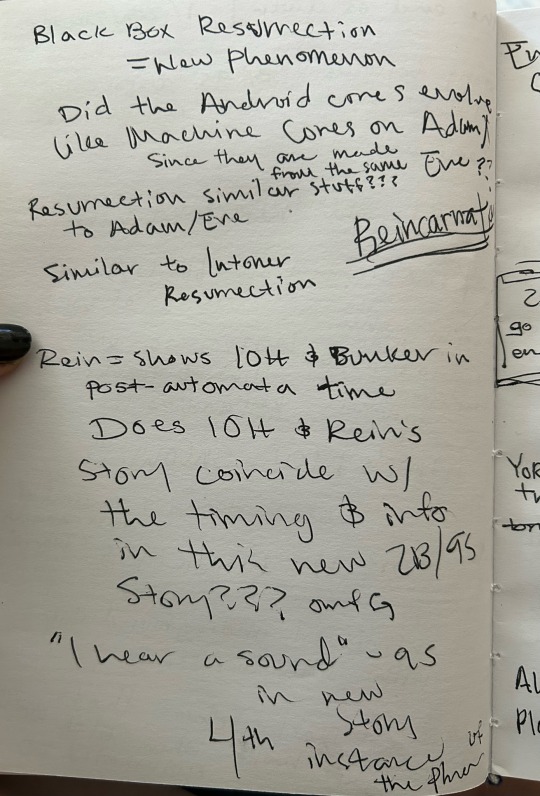 Black Box Resurrection
= New phenomenon
Did the Android cores evolve
like Machine Cores on Adam/
Eve??
Since they are made
from the same
stuff???
Resurrection similar
to Adam/Eve
Reincarnati
Similar to Intoner
Resurrection
Rein = shows 10H & Bunker in
post-automata time
Does 10H & Rein's
Story coincide w/
the timing & info
in this new 2B/9S
Story??? omfg
"I hear a sound" - 9S
in new
Story
4th instance of
the phrase
2
go
en
YoR
th
Al
Pl